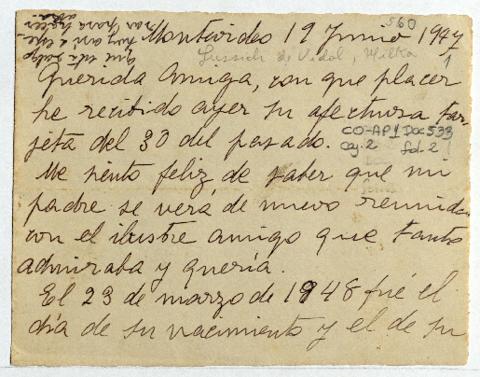 Montevideo 19 Junio 1947
560
Lussich de Vidal, Milka
1
Querida Amiga, con que placer
he recibido ayer su afectuosa tar-
jeta del 30 del pasado.
CO-AP1 Doc 533
caj. 2 fol. 2
Me siento feliz de saber que mi
padre se verá de nuevo reunido
con el ilustre amigo que tanto
admiraba y quería.
El 23 de marzo de 1848 fué el
día de su nacimiento y el de su